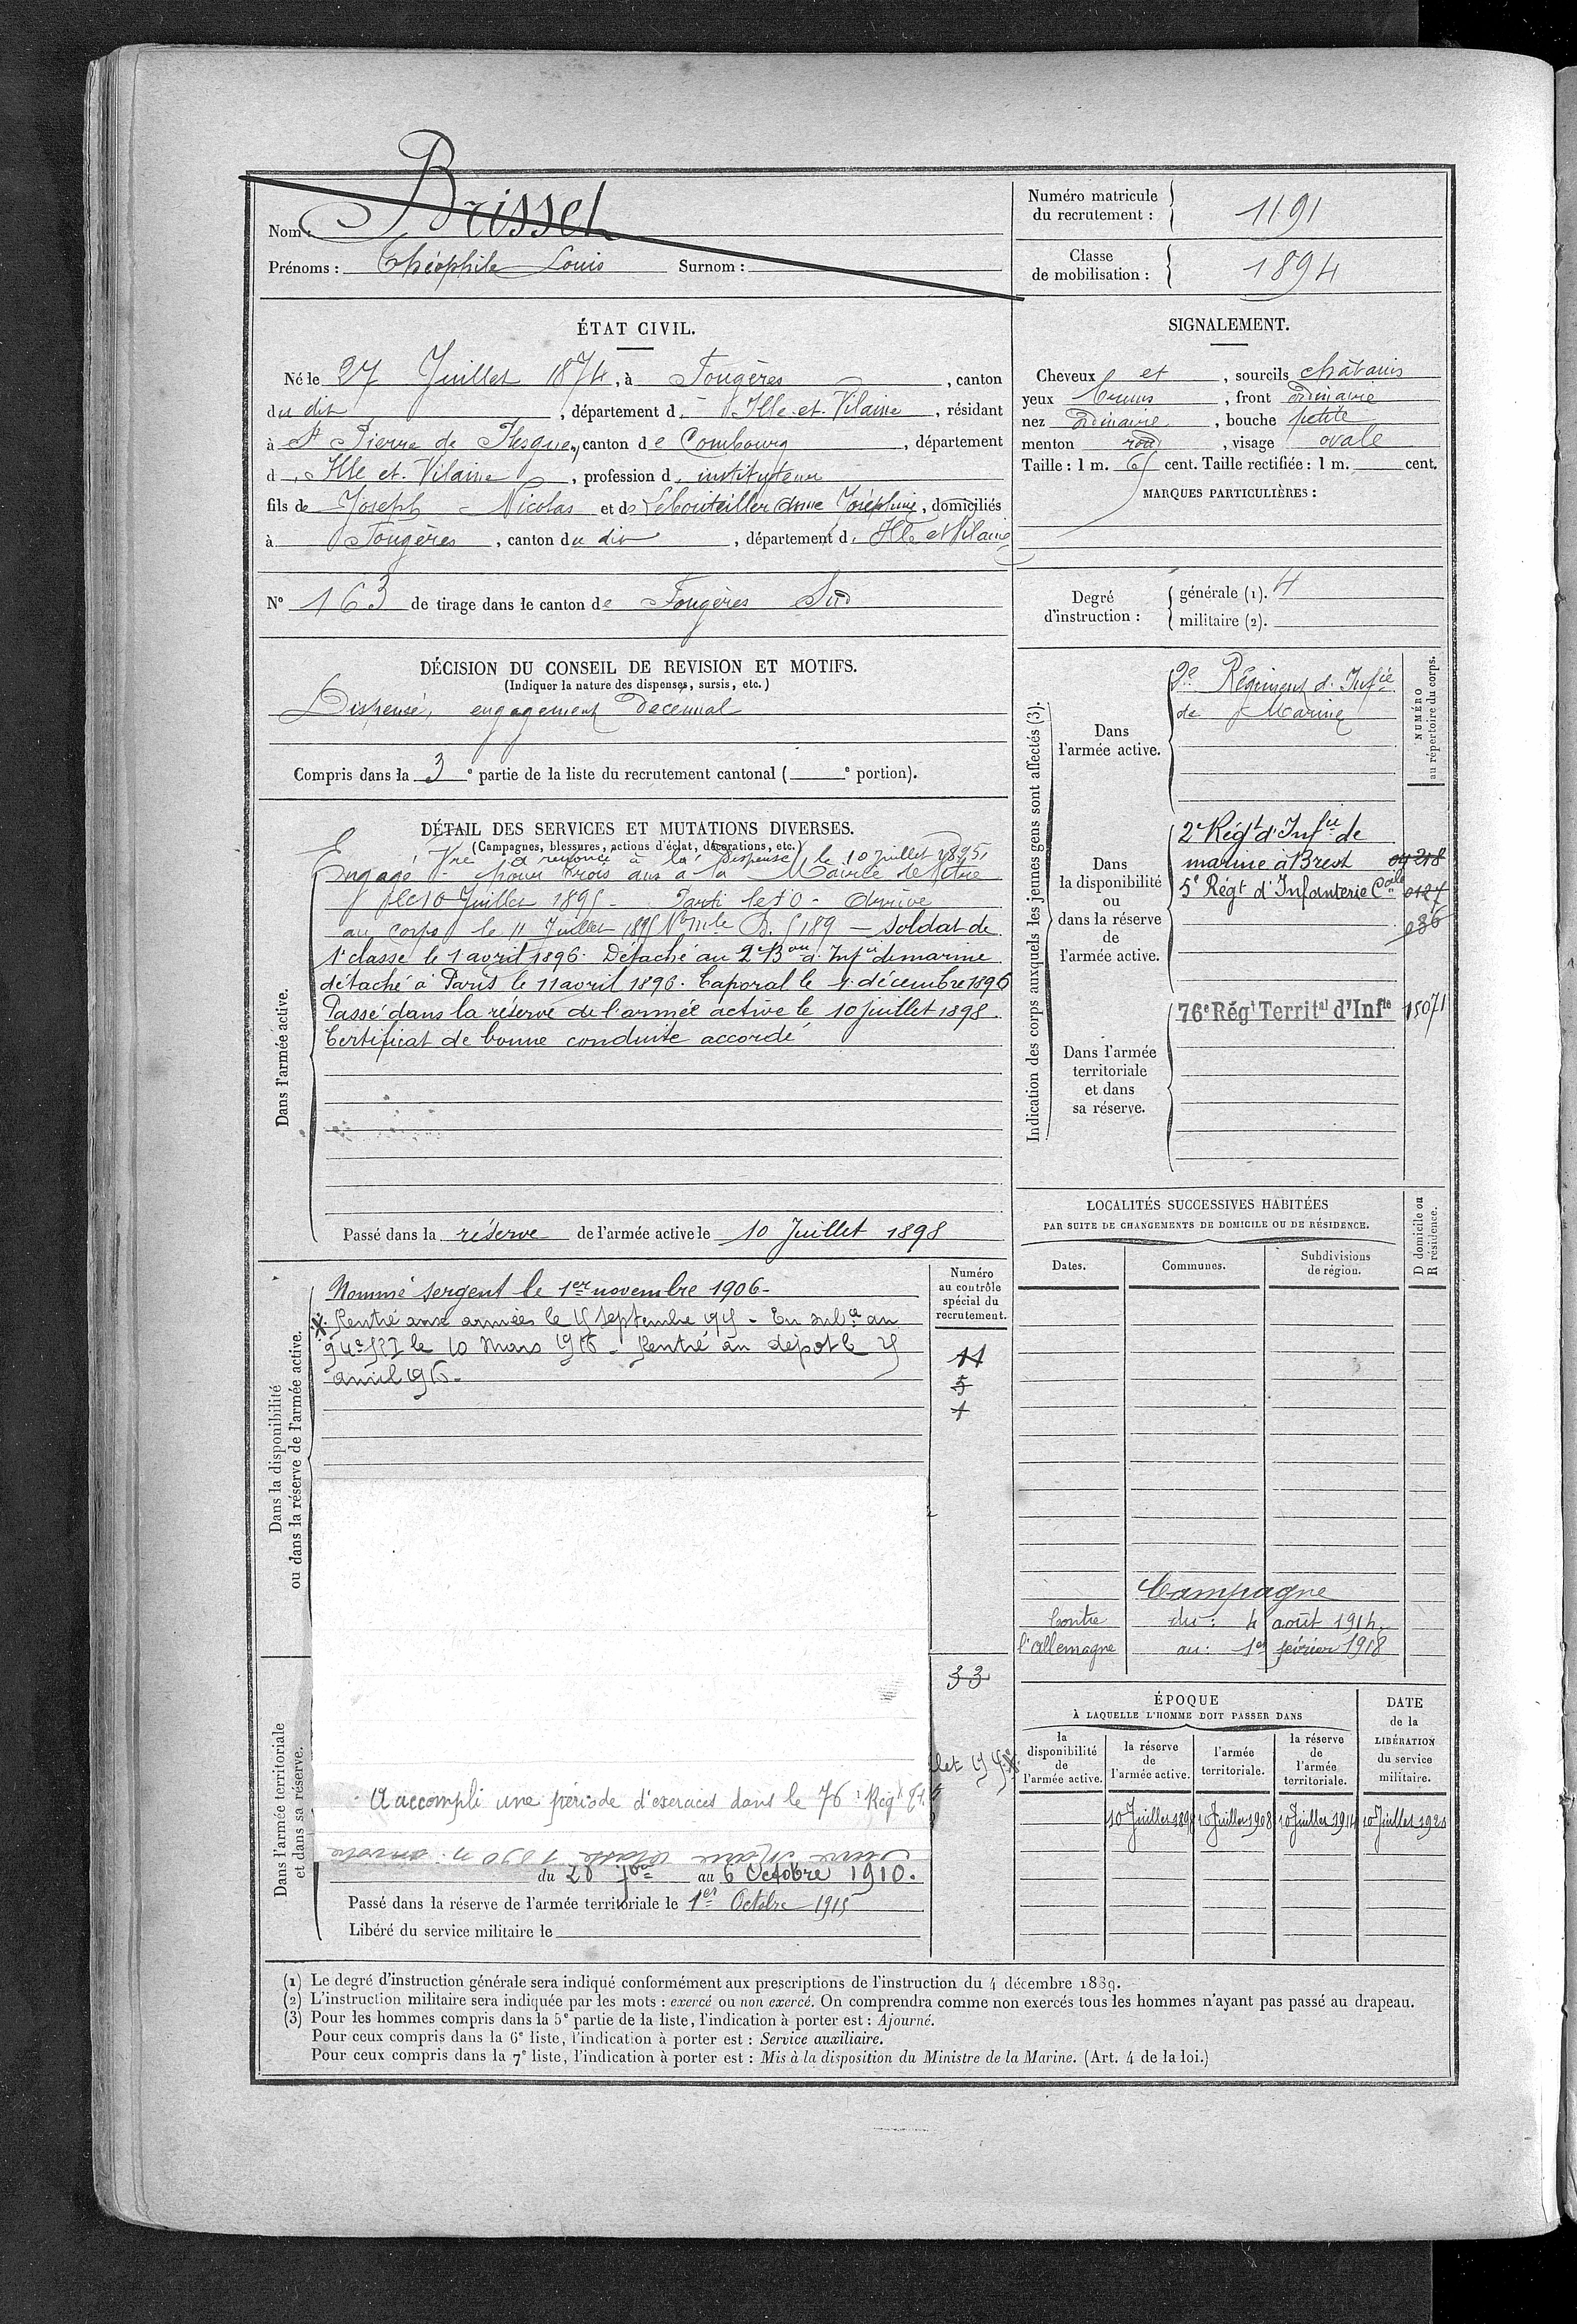 Nom : Brissel
Prénoms : Théophile Louis Surnom :
Numéro matricule du recrutement : 1191
Classe de mobilisation : 1894
ÉTAT CIVIL.
Né le 27 Juillet 1874, à Fougères, canton
du dit, département d'Ille-et-Vilaine, résidant
à St Pierre de Plesguen, canton de Combourg, département
d'Ille et Vilaine, profession d'instituteur
fils de Joseph Nicolas et de Lebouteiller Anne Joséphine, domiciliés
à Fougères, canton du dit, département d'Ille et Vilaine
N° 163 de tirage dans le canton de Fougères Sud
SIGNALEMENT.
Cheveux et, sourcils châtains
yeux bruns, front ordinaire
nez ordinaire, bouche petite
menton rond, visage ovale
Taille : 1 m. 65 cent. Taille rectifiée : 1 m. cent.
MARQUES PARTICULIÈRES :
Degré d'instruction :
générale (1). 4
militaire (2).
DÉCISION DU CONSEIL DE REVISION ET MOTIFS.
(Indiquer la nature des dispenses, sursis, etc.)
Dispensé, engagement décennal
Compris dans la 3e partie de la liste du recrutement cantonal ( e portion).
DÉTAIL DES SERVICES ET MUTATIONS DIVERSES.
(Campagnes, blessures, actions d'éclat, décorations, etc.)
a renoncé à la dispense le 10 juillet 1895,
Engagé Vre pour trois ans à la Mairie de
le 10 Juillet 1895 - Parti le 10 - Arrivé
au corps le 11 Juillet 1895 No Mle 5189 - Soldat de
1e classe le 1 avril 1896. Détaché au 2 Bon d'Infie de marine
détaché à Paris le 11 avril 1896. Caporal le 1 décembre 1896
Passé dans la réserve de l'armée active le 10 juillet 1898.
Certificat de bonne conduite accordé
Dans l'armée active.
Passé dans la réserve de l'armée active le 10 Juillet 1898
Indication des corps auxquels les jeunes gens sont affectés (3).
NUMÉRO au répertoire du corps.
Dans l'armée active.
2e Régiment d'Infie
de Marine
Dans la disponibilité ou dans la réserve de l'armée active.
2e Régt d'Infie de
marine à Brest
5e Régt d'Infanterie Cale 0127
036
Dans l'armée territoriale et dans sa réserve.
76e Régt Territal d'Infie 15071
Dans la disponibilité ou dans la réserve de l'armée active.
Nommé sergent le 1er novembre 1906-
Rentré aux armées le 15 septembre 1915 - En subce au
94e le 10 Mars 1916 - Rentré au dépôt le 25
avril 1916-
Numéro au contrôle spécial du recrutement.
11
5
1
33
LOCALITÉS SUCCESSIVES HABITÉES
PAR SUITE DE CHANGEMENTS DE DOMICILE OU DE RÉSIDENCE.
Dates. Communes. Subdivisions de région. D domicile ou R résidence.
Campagne
Contre du : 4 août 1914,
l'allemagne au : 1er février 1918
Dans l'armée territoriale et dans sa réserve.
A accompli une période d'exercices dans le 76e Régt
du 28 7bre au 6 Octobre 1910.
Passé dans la réserve de l'armée territoriale le 1er Octobre 1915
Libéré du service militaire le
ÉPOQUE
À LAQUELLE L'HOMME DOIT PASSER DANS
la disponibilité de l'armée active.
la réserve de l'armée active.
l'armée territoriale.
la réserve de l'armée territoriale.
DATE de la LIBÉRATION du service militaire.
10 Juillet 1898 10 Juillet 1908 10 Juillet 1914 10 Juillet 1920
(1) Le degré d'instruction générale sera indiqué conformément aux prescriptions de l'instruction du 4 décembre 1889.
(2) L'instruction militaire sera indiquée par les mots : exercé ou non exercé. On comprendra comme non exercés tous les hommes n'ayant pas passé au drapeau.
(3) Pour les hommes compris dans la 5e partie de la liste, l'indication à porter est : Ajourné.
Pour ceux compris dans la 6e liste, l'indication à porter est : Service auxiliaire.
Pour ceux compris dans la 7e liste, l'indication à porter est : Mis à la disposition du Ministre de la Marine. (Art. 4 de la loi.)